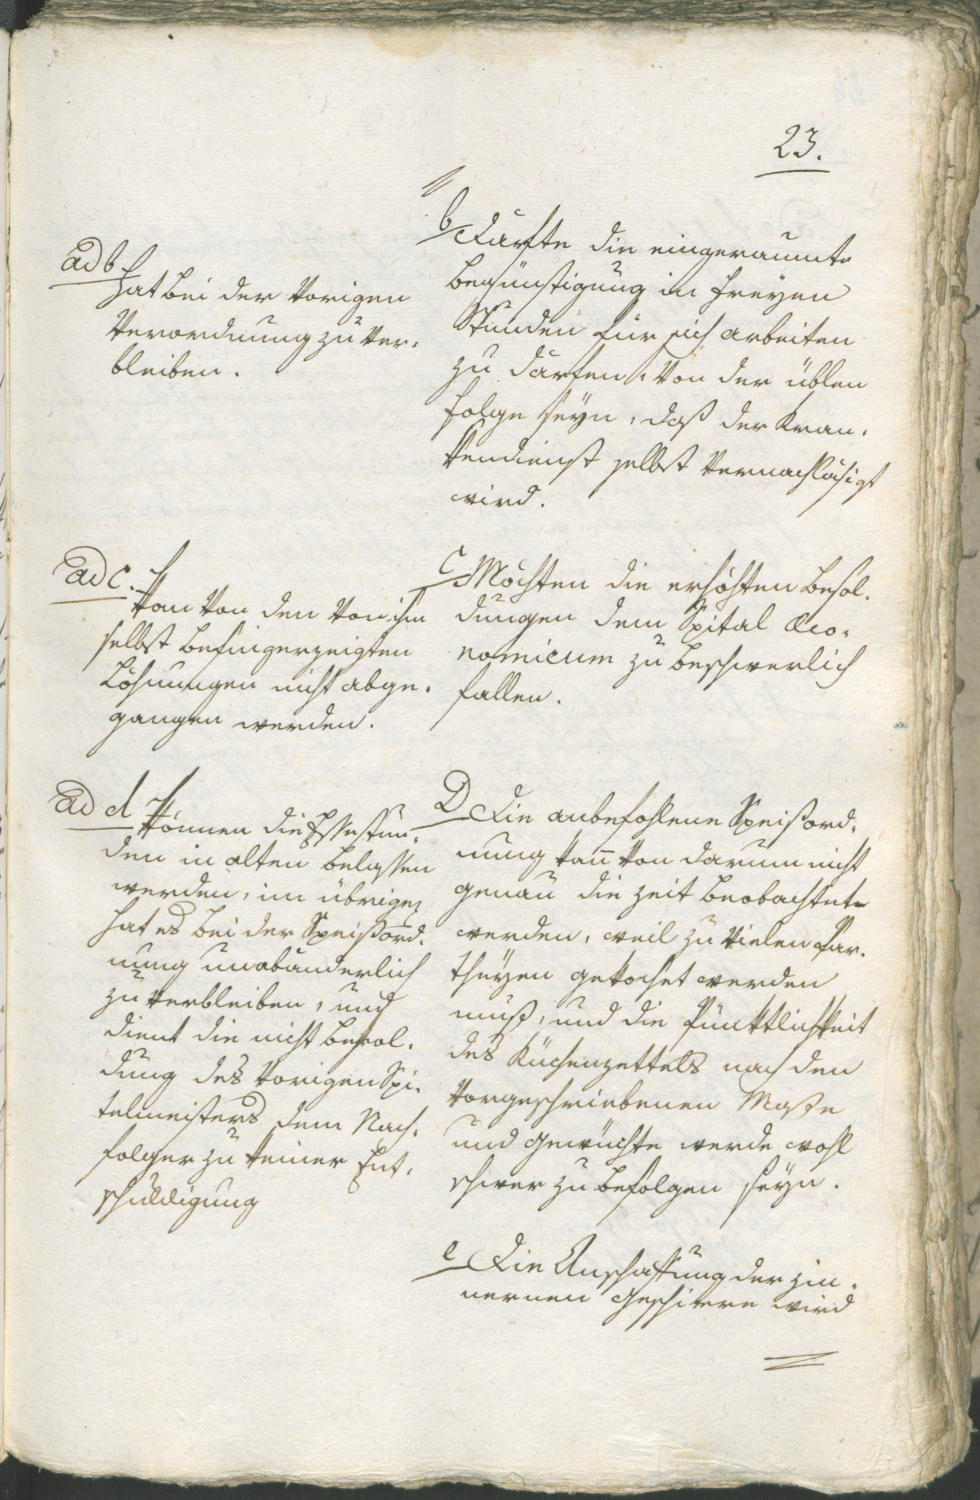 23.
ad b
hat bei der vorigen
Verordnung zu ver-
bleiben.
b Dürfte die eingeraumte
Begünstigung in freyen
Stunden für sich arbeiten
zu dürfen, von der üblen
Folge seyn, daß der Kran-
kendienst selbst vernachläsigt
wird.
ad c.
Kan von den von ihm
selbst befingerzeigten
Löhnungen nicht abge-
gangen werden.
c Möchten die erhöhten Besol-
dungen dem Spital Oeco-
nomicum zu beschwerlich
fallen.
ad d
Können die Essstun-
den in alten belassen
werden, im übrigen
hat es bei der Speißord-
nung unabänderlich
zu verbleiben, und
dient die nicht befol-
gung des vorigen Spi-
telmeisters dem Nach-
folger zu keiner Ent-
schuldigung
D Die anbefohlene Speißord-
nung kann von darum nicht
genau die Zeit beobachtet
werden, weil zu vielen Par-
theyen gekochet werden
muß, und die Pünktlichkeit
des Küchenzettels nach den
vorgeschriebenen Maße
und Gewichte werde wohl
schwer zu befolgen seyn.
e Die Anschaffung der zin-
nernen Geschirre wird